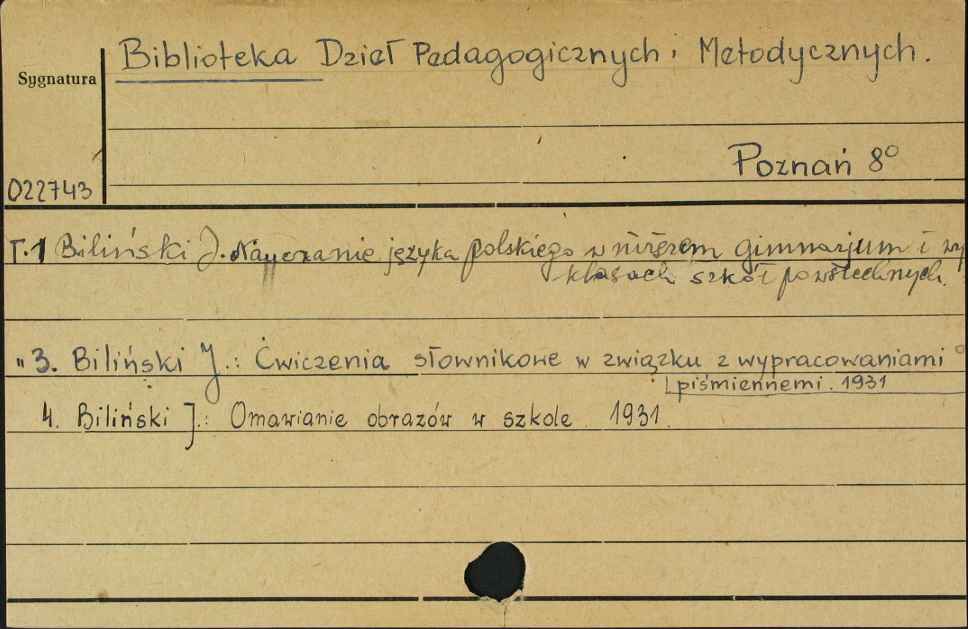 Biblioteka Dzieł Pedagogicznych i Metodycznych.
Sygnatura
Poznań 8°
022743
T.1 Biliński J. Nauczanie języka polskiego w niższem gimnazjum i wy
klasach szkół powszechnych.
" 3. Biliński J.: Ćwiczenia słownikowe w związku z wypracowaniami
piśmiennemi. 1931
4. Biliński J.: Omawianie obrazów w szkole 1931.